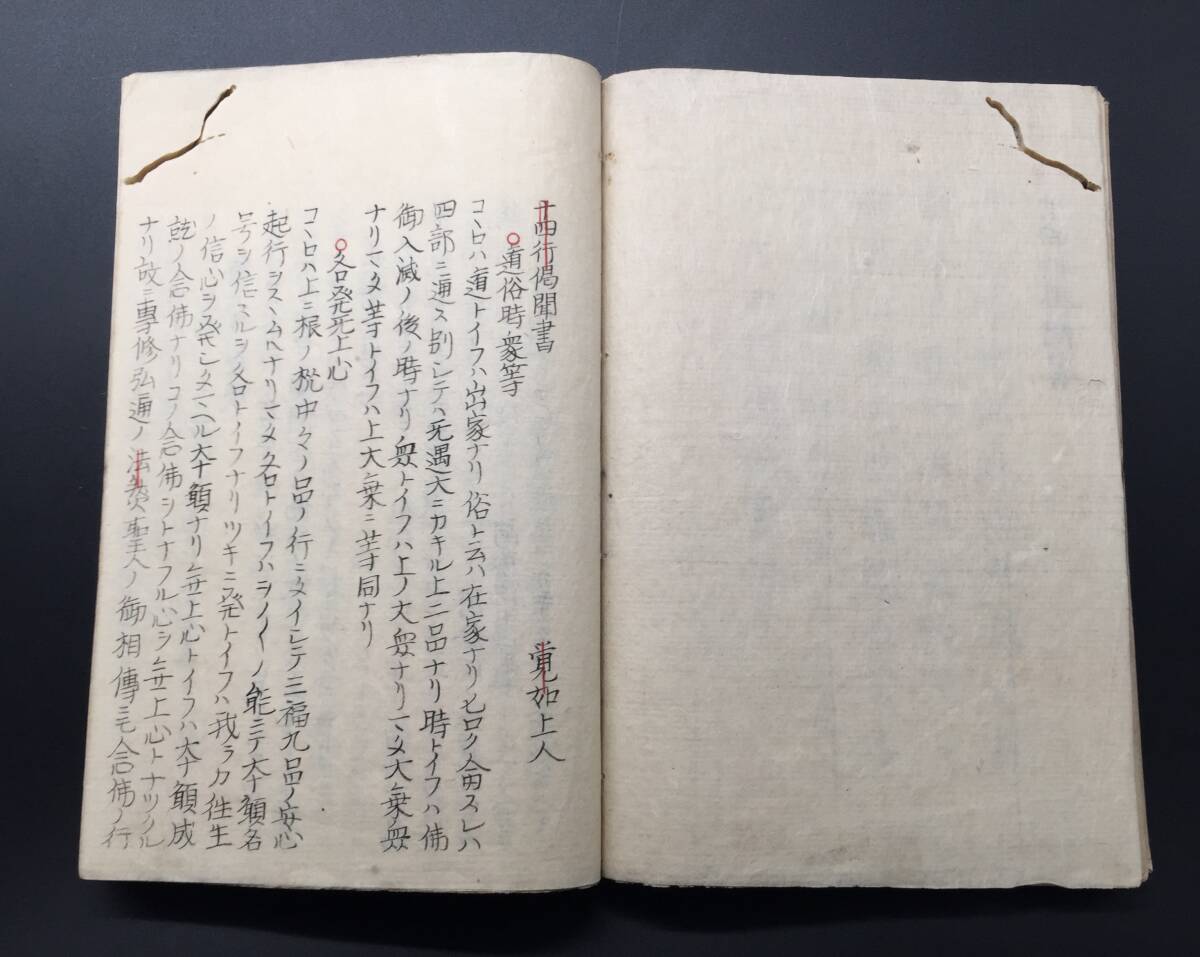 十四行偈聞書　　　　　　覚如上人
道俗時衆等
コヽロハ道トイフハ出家ナリ俗ト云ハ在家ナリヒロク論スレハ
四部ニ通ス別シテハ无遇大ニカキル上二品ナリ時トイフハ佛
御入滅ノ後ノ時ナリ衆トイフハ上ノ大衆ナリマタ大乗ノ衆
ナリマタ等トイフハ上大乗ニ等同ナリ
各発无上心
コヽロハ上ニ根ノ機中々ノ品ノ行ニタイシテ三福九品ノ安心
起行ヲスヽムヘナリマタ各トイフハヲノ〳〵ノ能ニテ本願名
号ヲ信スルヲ各トイフナリツキニ発トイフハ我ラカ往生
ノ信心ヲ発シタマヘル本願ナリ無上心トイフハ本願成
就ノ念佛ナリコノ念佛ヲトナフル心ヲ無上心トナツクル
ナリ故ニ専修弘通ノ法然聖人ノ御相傳ニモ念佛ノ行